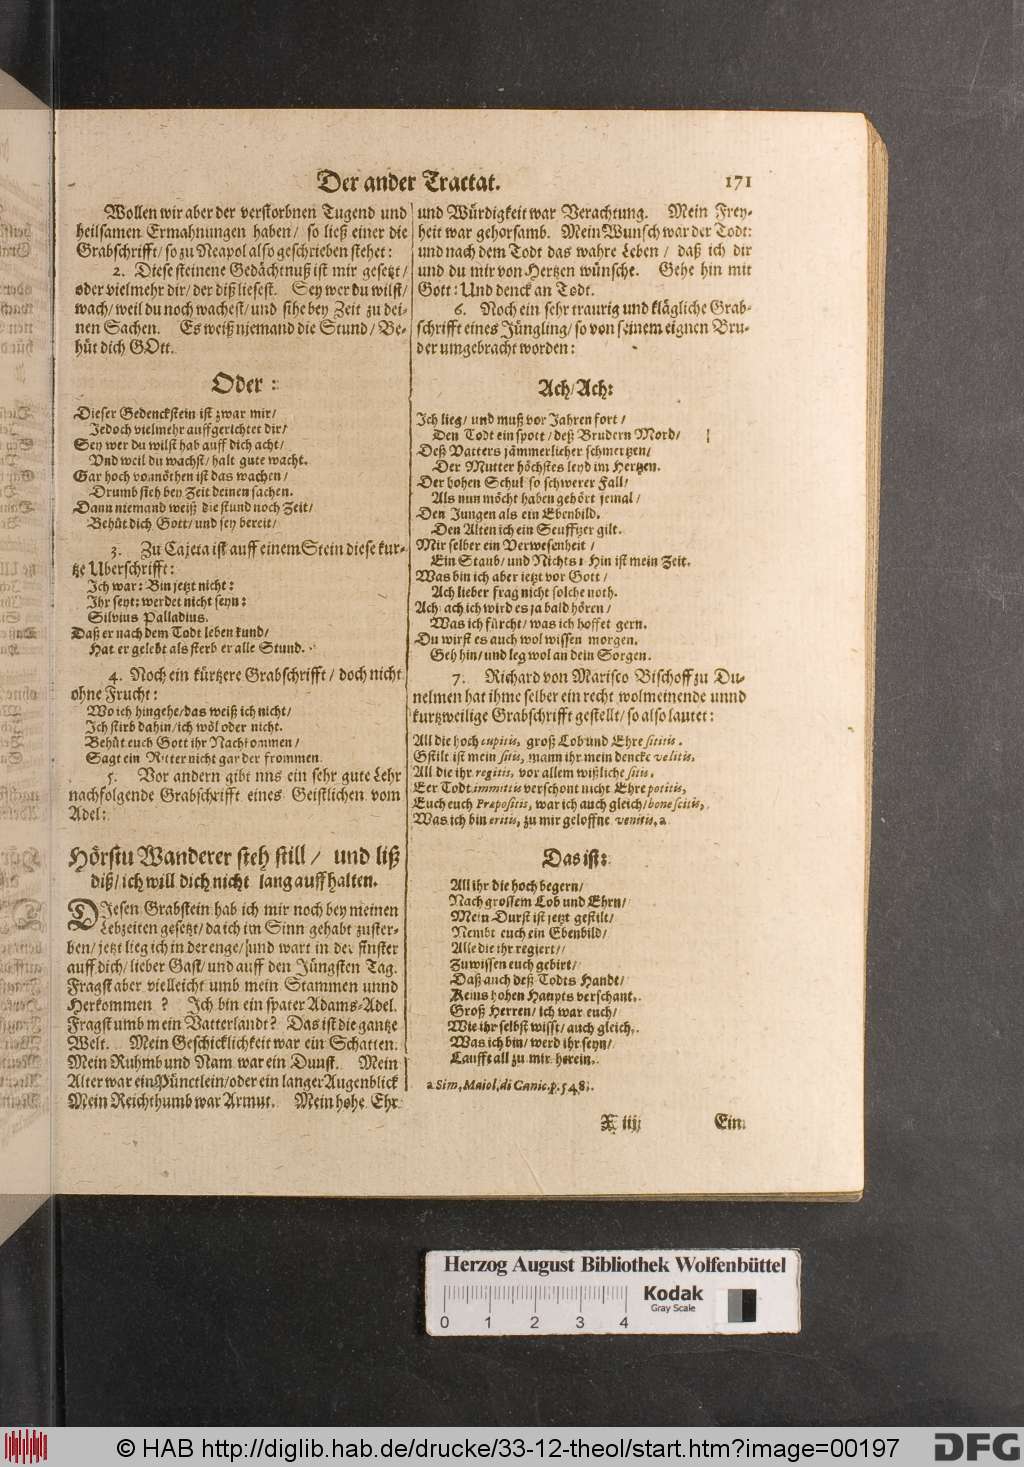 Der ander Tractat.
171
Wollen wir aber der verstorbnen Tugend und
heilsamen Ermahnungen haben/ so ließ einer die
Grabschrifft/ so zu Neapol also geschrieben stehet:
2. Diese steinene Gedächtnuß ist mir gesetzt/
oder vielmehr dir/ der diß liesest. Sey wer du wilst/
wach/ weil du noch wachest/ und sihe bey Zeit zu dei-
nen Sachen. Es weiß niemand die Stund/ Be-
hüt dich GOtt.
Oder:
Dieser Gedenckstein ist zwar mir/
Jedoch vielmehr auffgerichtet dir/
Sey wer du wilst hab auff dich acht/
Vnd weil du wachst/ halt gute wacht.
Gar hoch vonnöthen ist das wachen/
Drumb steh bey Zeit deinen sachen.
Dann niemand weiß die stund noch Zeit/
Behüt dich Gott/ und sey bereit/
3. Zu Cajeta ist auff einem Stein diese kur-
tze Uberschrifft:
Ich war: Bin jetzt nicht:
Ihr seyt: werdet nicht seyn:
Silvius Palladius.
Daß er nach dem Todt leben kund/
Hat er gelebt als sterb er alle Stund.
4. Noch ein kürtzere Grabschrifft/ doch nicht
ohne Frucht:
Wo ich hingehe/ das weiß ich nicht/
Ich stirb dahin/ ich wöl oder nicht.
Behüt euch Gott ihr Nachkommen/
Sagt ein Ritter nicht gar der frommen.
5. Vor andern gibt uns ein sehr gute Lehr
nachfolgende Grabschrifft eines Geistlichen vom
Adel:
Hörstu Wanderer steh still/ und liß
diß/ ich will dich nicht lang auffhalten.
DIesen Grabstein hab ich mir noch bey meinen
Lebzeiten gesetzt/ da ich im Sinn gehabt zu ster-
ben/ jetzt lieg ich in der enge/ und wart in der finster
auff dich/ lieber Gast/ und auff den Jüngsten Tag.
Fragst aber vielleicht umb mein Stammen unnd
Herkommen? Ich bin ein spater Adams-Adel.
Fragst umb mein Vatterlandt? Das ist die gantze
Welt. Mein Geschicklichkeit war ein Schatten.
Mein Ruhmb und Nam war ein Dunst. Mein
Alter war ein Pünctlein/ oder ein langer Augenblick
Mein Reichthumb war Armut. Mein hohe Ehr
und Würdigkeit war Verachtung. Mein Frey-
heit war gehorsamb. Mein Wunsch war der Todt:
und nach dem Todt das wahre Leben/ daß ich dir
und du mir von Hertzen wünsche. Gehe hin mit
Gott: Und denck an Todt.
6. Noch ein sehr traurig und klägliche Grab-
schrifft eines Jüngling/ so von seinem eignen Bru-
der umgebracht worden:
Ach/ Ach:
Ich lieg/ und muß vor Jahren fort/
Den Todt ein spott/ deß Brudern Mord/
Deß Vatters jämmerlicher schmertzen/
Der Mutter höchstes leyd im Hertzen.
Der hohen Schul so schwerer Fall/
Als nun möcht haben gehört jemal/
Den Jungen als ein Ebenbild.
Den Alten ich ein Seufftzer gilt.
Mir selber ein Verwesenheit/
Ein Staub/ und Nichts: Hin ist mein Zeit.
Was bin ich aber jetzt vor Gott/
Ach lieber frag nicht solche noth.
Ach/ ach ich wird es ja bald hören/
Was ich fürcht/ was ich hoffet gern.
Du wirst es auch wol wissen morgen.
Geh hin/ und leg wol an dein Sorgen.
7. Richard von Marisco Bischoff zu Du-
nelmen hat ihme selber ein recht wolmeinende unnd
kurtzweilige Grabschrifft gestellt/ so also lautet:
All die hoch cupitis, groß Lob und Ehre sititis.
Gstilt ist mein sitis, mann ihr mein dencke velitis.
All die ihr regitis, vor allem wißliche sitis.
Eer Todt immitis verschont nicht Ehre potitis,
Euch euch Præpositis, war ich auch gleich/ bone scitis,
Was ich bin eritis, zu mir geloffne venitis, a
Das ist:
All ihr die hoch begern/
Nach grossem Lob und Ehrn/
Mein Durst ist jetzt gestilt/
Nembt euch ein Ebenbild/
Alle die ihr regiert/
Zuwissen euch gebirt/
Daß auch deß Todts Handt/
Keins hohen Haupts verschant.
Groß Herren/ ich war euch/
Wie ihr selbst wisst/ auch gleich.
Was ich bin/ werd ihr seyn/
Laufft all zu mir herein.
a Sim, Maiol, di Canic. p. 548.
X iij
Ein.
Herzog August Bibliothek Wolfenbüttel
Kodak
Gray Scale
0 1 2 3 4
© HAB http://diglib.hab.de/drucke/33-12-theol/start.htm?image=00197
DFG